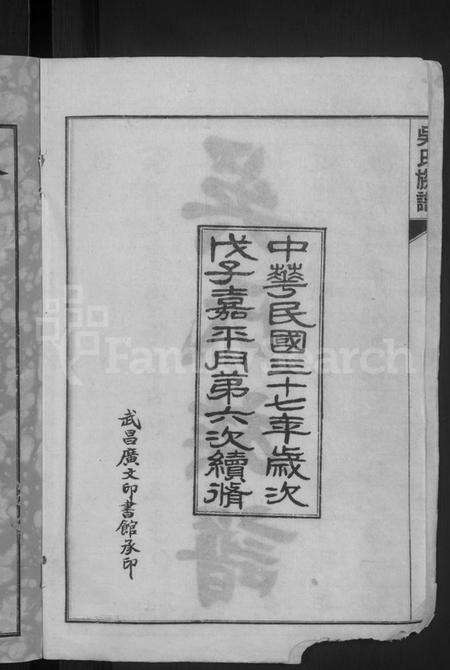 吳氏族譜
中華民國三十七年歲次
戊子嘉平月第六次續脩
武昌廣文印書館承印
FamilySearch